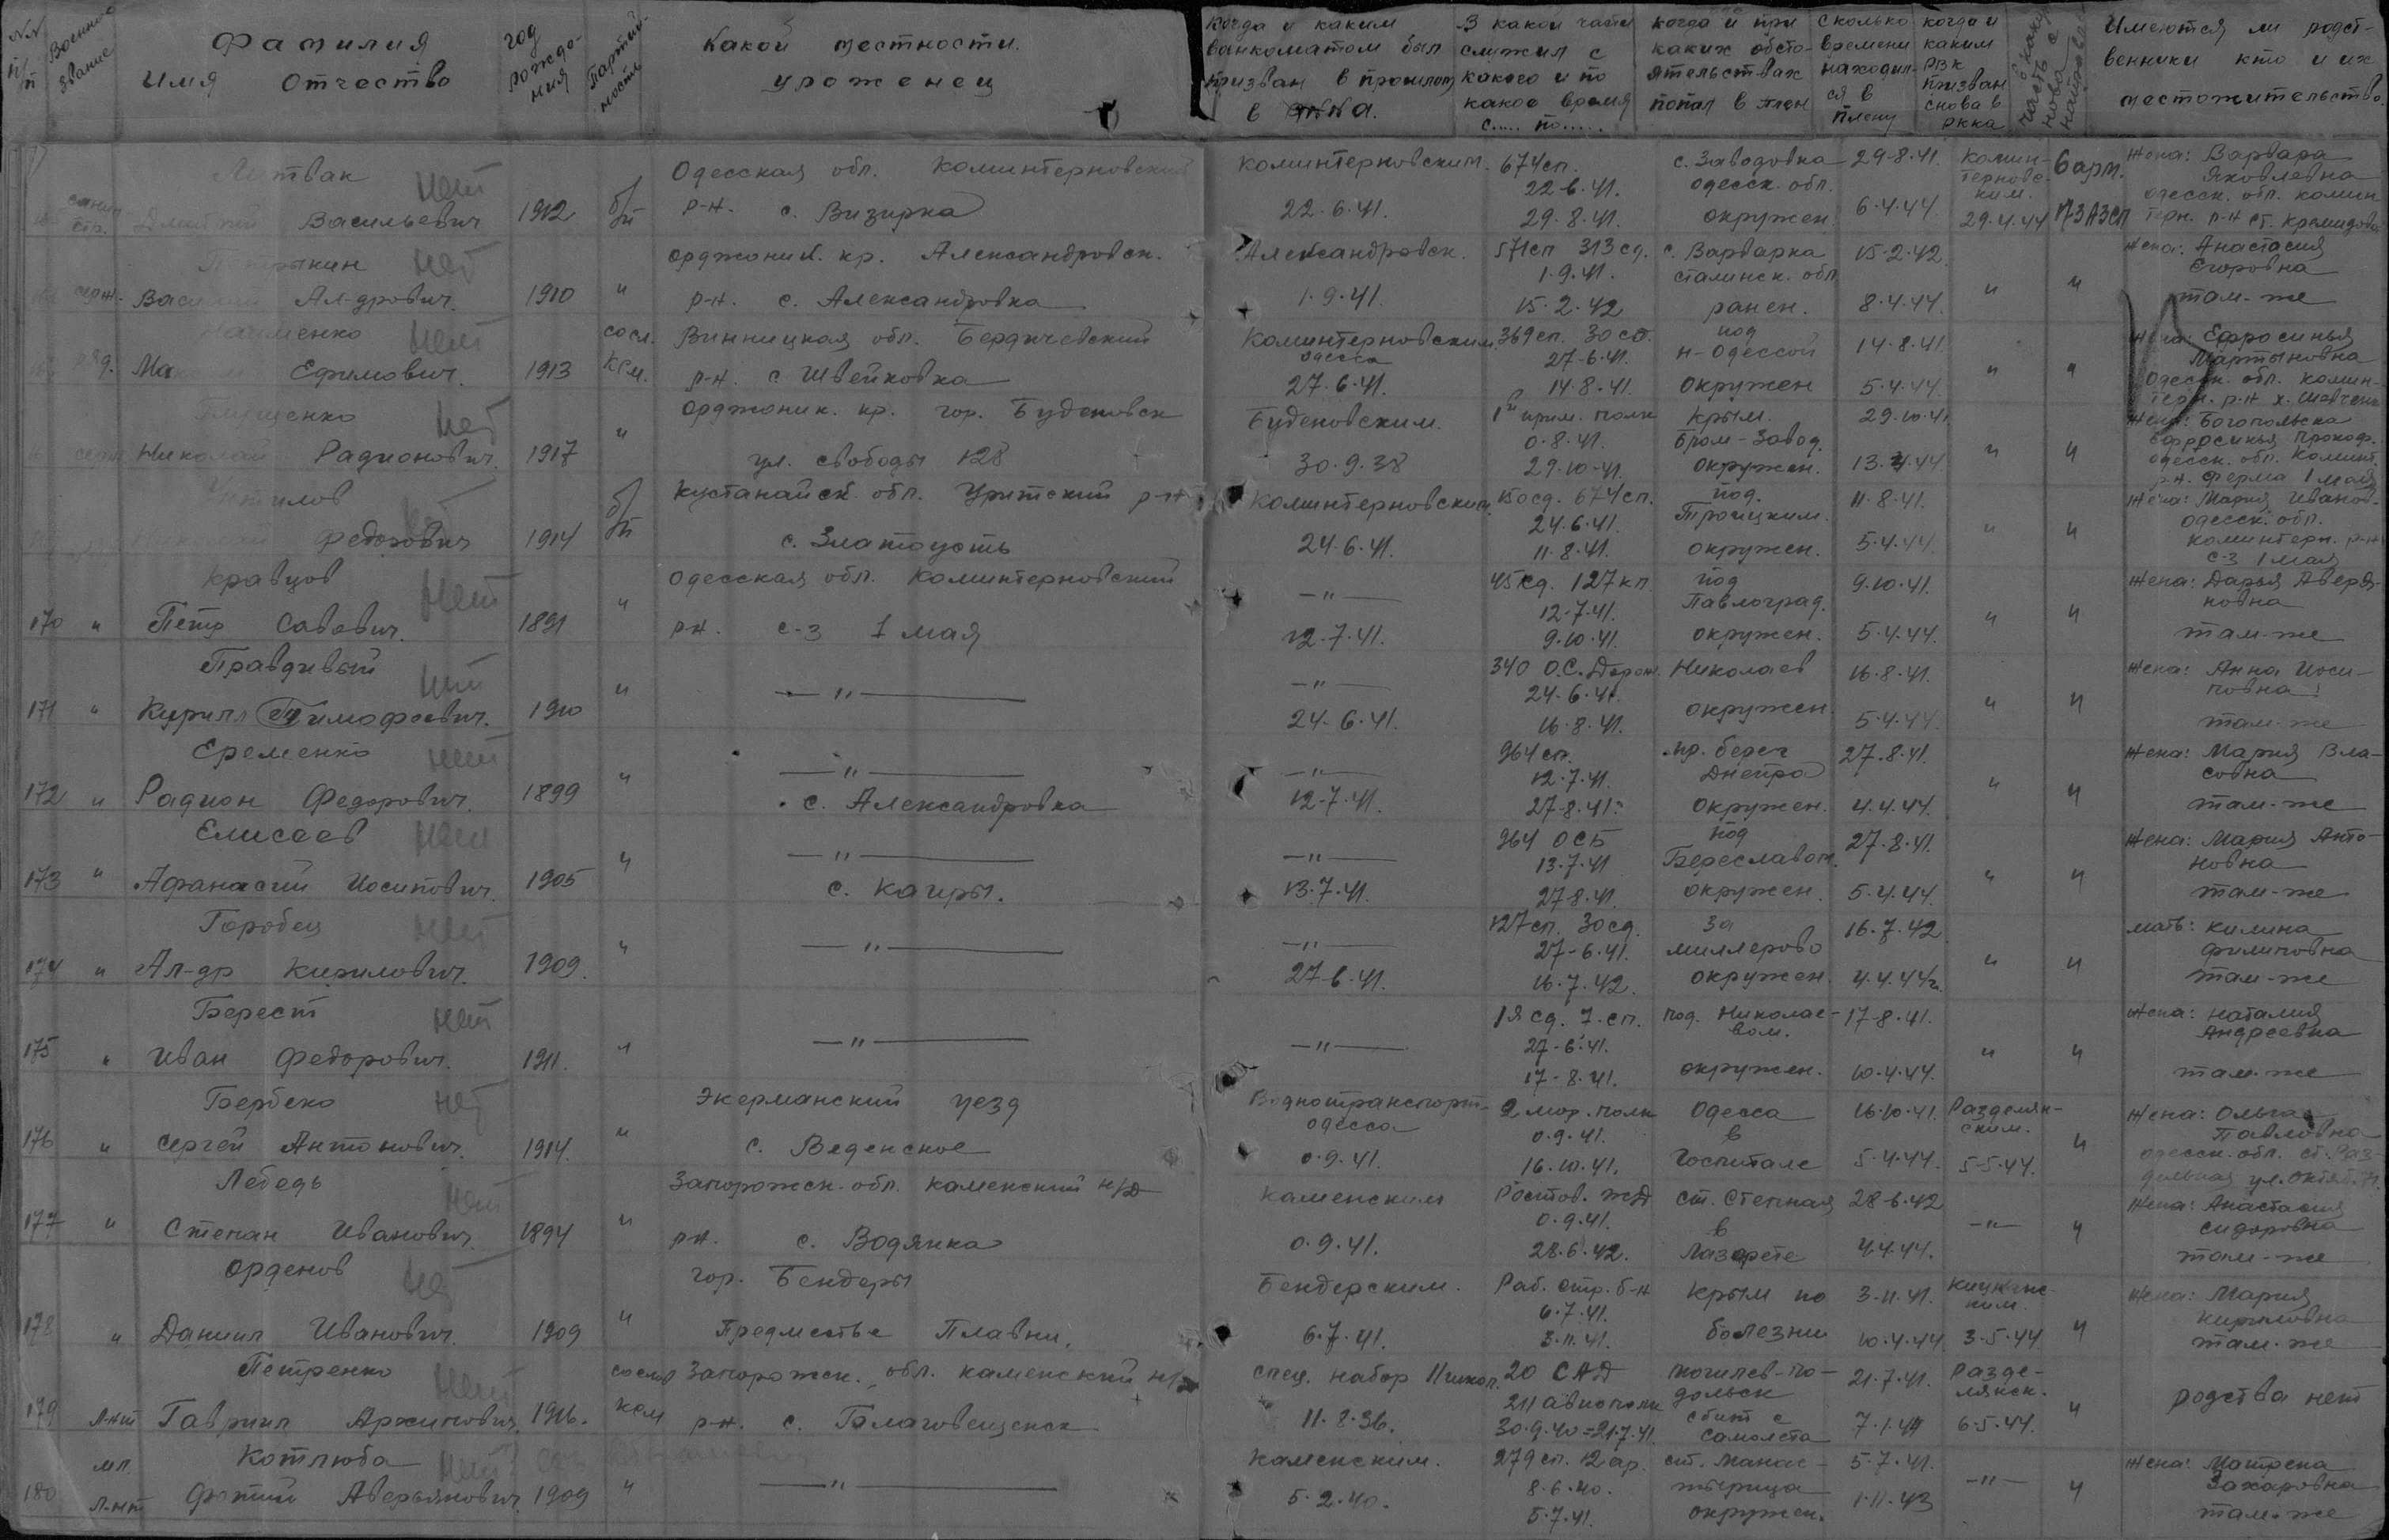 №№ п/п
Военное звание
Фамилия
Имя Отчество
год рождения
Партийность
Какой местности
уроженец
Когда и каким
военкоматом был
призван в прошлом
в
В какой части
служил с
какого и по
какое время
с..... по.....
когда и при
каких обсто-
ятельствах
попал в плен
Сколько
времени
находил-
ся в
плену
когда и
каким
РВК
призван
снова в
РККА
Имеются ли родст-
венники кто и их
местожительство.
нет
Васильевич 1912 б/п
Одесская обл. Коминтерновский
р-н. с. Визирка
Коминтерновским.
22.6.41.
674 сп.
22-6.41.
29.8.41.
с. Заводовка
одесск. обл.
окружен
29-8.41.
6.4.44.
Комин-
терновс-
ким.
29.4.44
6 арм.
Жена: Варвара
Яковлевна
одесск. обл. комин
терн. р-н ст.
нет
Ал-дрович. 1910 "
орджоник. кр. Александровск.
р-н. с. Александровка
Александровск.
1.9.41.
571сп 313 сд.
1.9.41.
15.2.42
с. Варварка
сталинск. обл.
ранен.
15.2.42
8.4.44.
" "
Жена: Анастасия
Егоровна
там-же
Науменко нет
ряд. Ефимович. 1913
Винницкая обл. Бердичевский
р-н. с Швейковка
Коминтерновским
одесса
27.6.41.
369сп. 30 сд.
27-6.41.
14.8.41.
под
н-Одессой
окружен
14.8.41.
5.4.44.
" "
Жена Ефросинья
Мартыновна
Одесск. обл. комин-
терн. р-н х.
нет
Николай Радионович. 1917 "
орджоник. кр. гор. Буденовск
ул. свободы 128
Буденовским.
30.9.38
0.8.41.
29.10-41.
Крым.
Бром-Завод.
окружен.
29.10.41
13.4.44
" "
Жена: Богопольска
Ефросинья Прокоф.
одесск. обл. Коминт.
р-н. ферма 1 мая
Федорович 1914 б/п
Кустанайск. обл. Урицкий р-н
с. Златоусть
Коминтерновским.
24.6.41.
150сд. 674 сп.
24.6.41.
11.8.41.
под.
Троицким.
окружен.
11.8.41.
5.4.44.
" "
Жена: Мария Иванов.
одесск. обл.
коминтерн. р-н
с-з 1 мая
Кравцов нет
170 " Петр Савович. 1891 "
Одесская обл. Коминтерновский
р-н. с-з 1 мая
— " —
12.7.41.
45кд. 127 кп
12.7.41.
9.10.41.
под
Павлоград.
окружен.
9.10.41.
5.4.44.
" "
Жена: Дарья Аверья-
новна
там-же
Правдивый нет
171 " Кирилл Тимофеевич. 1910 "
— " —
— " —
24.6.41.
24.6.41.
16.8.41.
Николаев
окружен
16.8.41.
5.4.44.
" "
Жена: Анна Иоси-
повна
там-же
Еременко нет
172 " Радион Федорович. 1899 "
— " —
с. Александровка
— " —
12-7.41.
964 сп.
12.7.41.
27-8.41.
пр. берег
Днепра
окружен.
27.8.41.
4.4.44.
" "
Жена: Мария Вла-
совна
там-же
Елисеев нет
173 " Афанасий Иосипович. 1905 "
— " —
с. Каиры.
— " —
13.7.41.
964 ОСБ
13.7.41
27.8.41.
под
Береславом.
окружен.
27.8.41.
5.4.44.
" "
Жена: Мария Анто-
новна
там-же
Горобец нет
174 " Ал-др Кирилович. 1909. "
— " —
— " —
27.6.41.
127 сп. 30 сд.
27-6.41.
16.7.42.
За
миллерово
окружен.
16.7.42
4.4.44г.
" "
мать: Килина
Филиповна
там-же
Берест нет
175 " Иван Федорович. 1911. "
— " —
— " —
27-6.41.
17-8.41.
под. Николае-
вом.
окружен.
17-8.41.
10.4.44.
" "
Жена: Наталия
Андреевна
там-же
Бербеко нет
176 " Сергей Антонович. 1914. "
Экерманский уезд
с. Веденское
Воднотранспорт-
одесса
0.9.41.
2 мор. полк
0.9.41.
16.10.41.
Одесса
в
госпитале
16.10.41.
5.4.44.
Разделян-
ским.
5-5.44.
"
Жена: Ольга
Павловна
одесск. обл. ст. Раз-
дельная ул.
Лебедь нет
177 " Степан Иванович. 1894 "
Запорожск. обл. Каменский н/Д
р-н. с. Водянка
Каменским
0.9.41.
Ростов. ЖД
0.9.41.
28.6.42.
ст. Степная
в
Лазарете
28-6.42
4.4.44.
— " — "
Жена: Анастасия
Сидоровна
там-же
Орденов нет
178 " Даниил Иванович. 1909 "
гор. Бендеры
Предместье Плавни.
Бендерским.
6.7.41.
Раб. стр. б-н
6.7.41.
3.11.41.
Крым по
болезни
3.11.41.
10.4.44
3.5.44
"
Жена: Мария
Кириловна
там-же
Петренко нет
179 л-нт Гавриил Архипович. 1916.
Запорожск. обл. каменский н/Д
р-н. с. Благовещенск
спец. набор
11.8.36.
20 САД
211 авиополк
30.9.40=21.7.41.
могилев-по-
дольск
сбит с
самолета
21.7.41.
7.1.44
Разде-
лянск.
6.5.44.
"
родства нет
Котлюба нет
180 мл. л-нт Фотий Аверьянович 1909 "
— " —
Каменским.
5.2.40.
279 сп. 12 ар.
8.6.40.
5.7.41.
окружен.
5.7.41.
1.11.43
— " — "
Жена: Матрена
Захаровна
там-же